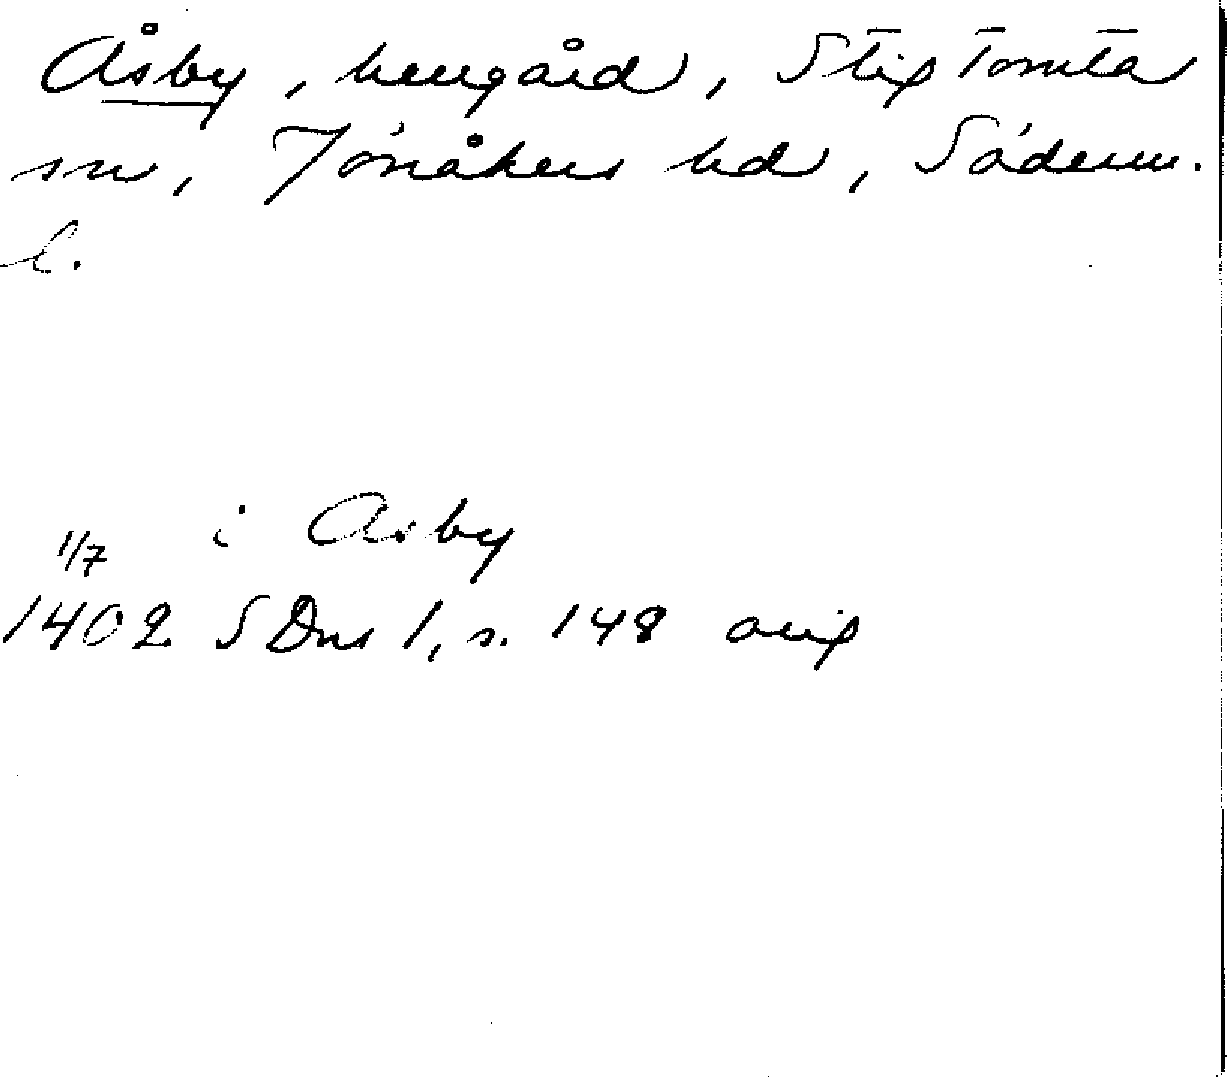 Åsby, herrgård, Stigtomta
sn, Jönåkers hd, Söderm.
l.
1/7 i Asby
1402 SDns 1, s. 148 orig